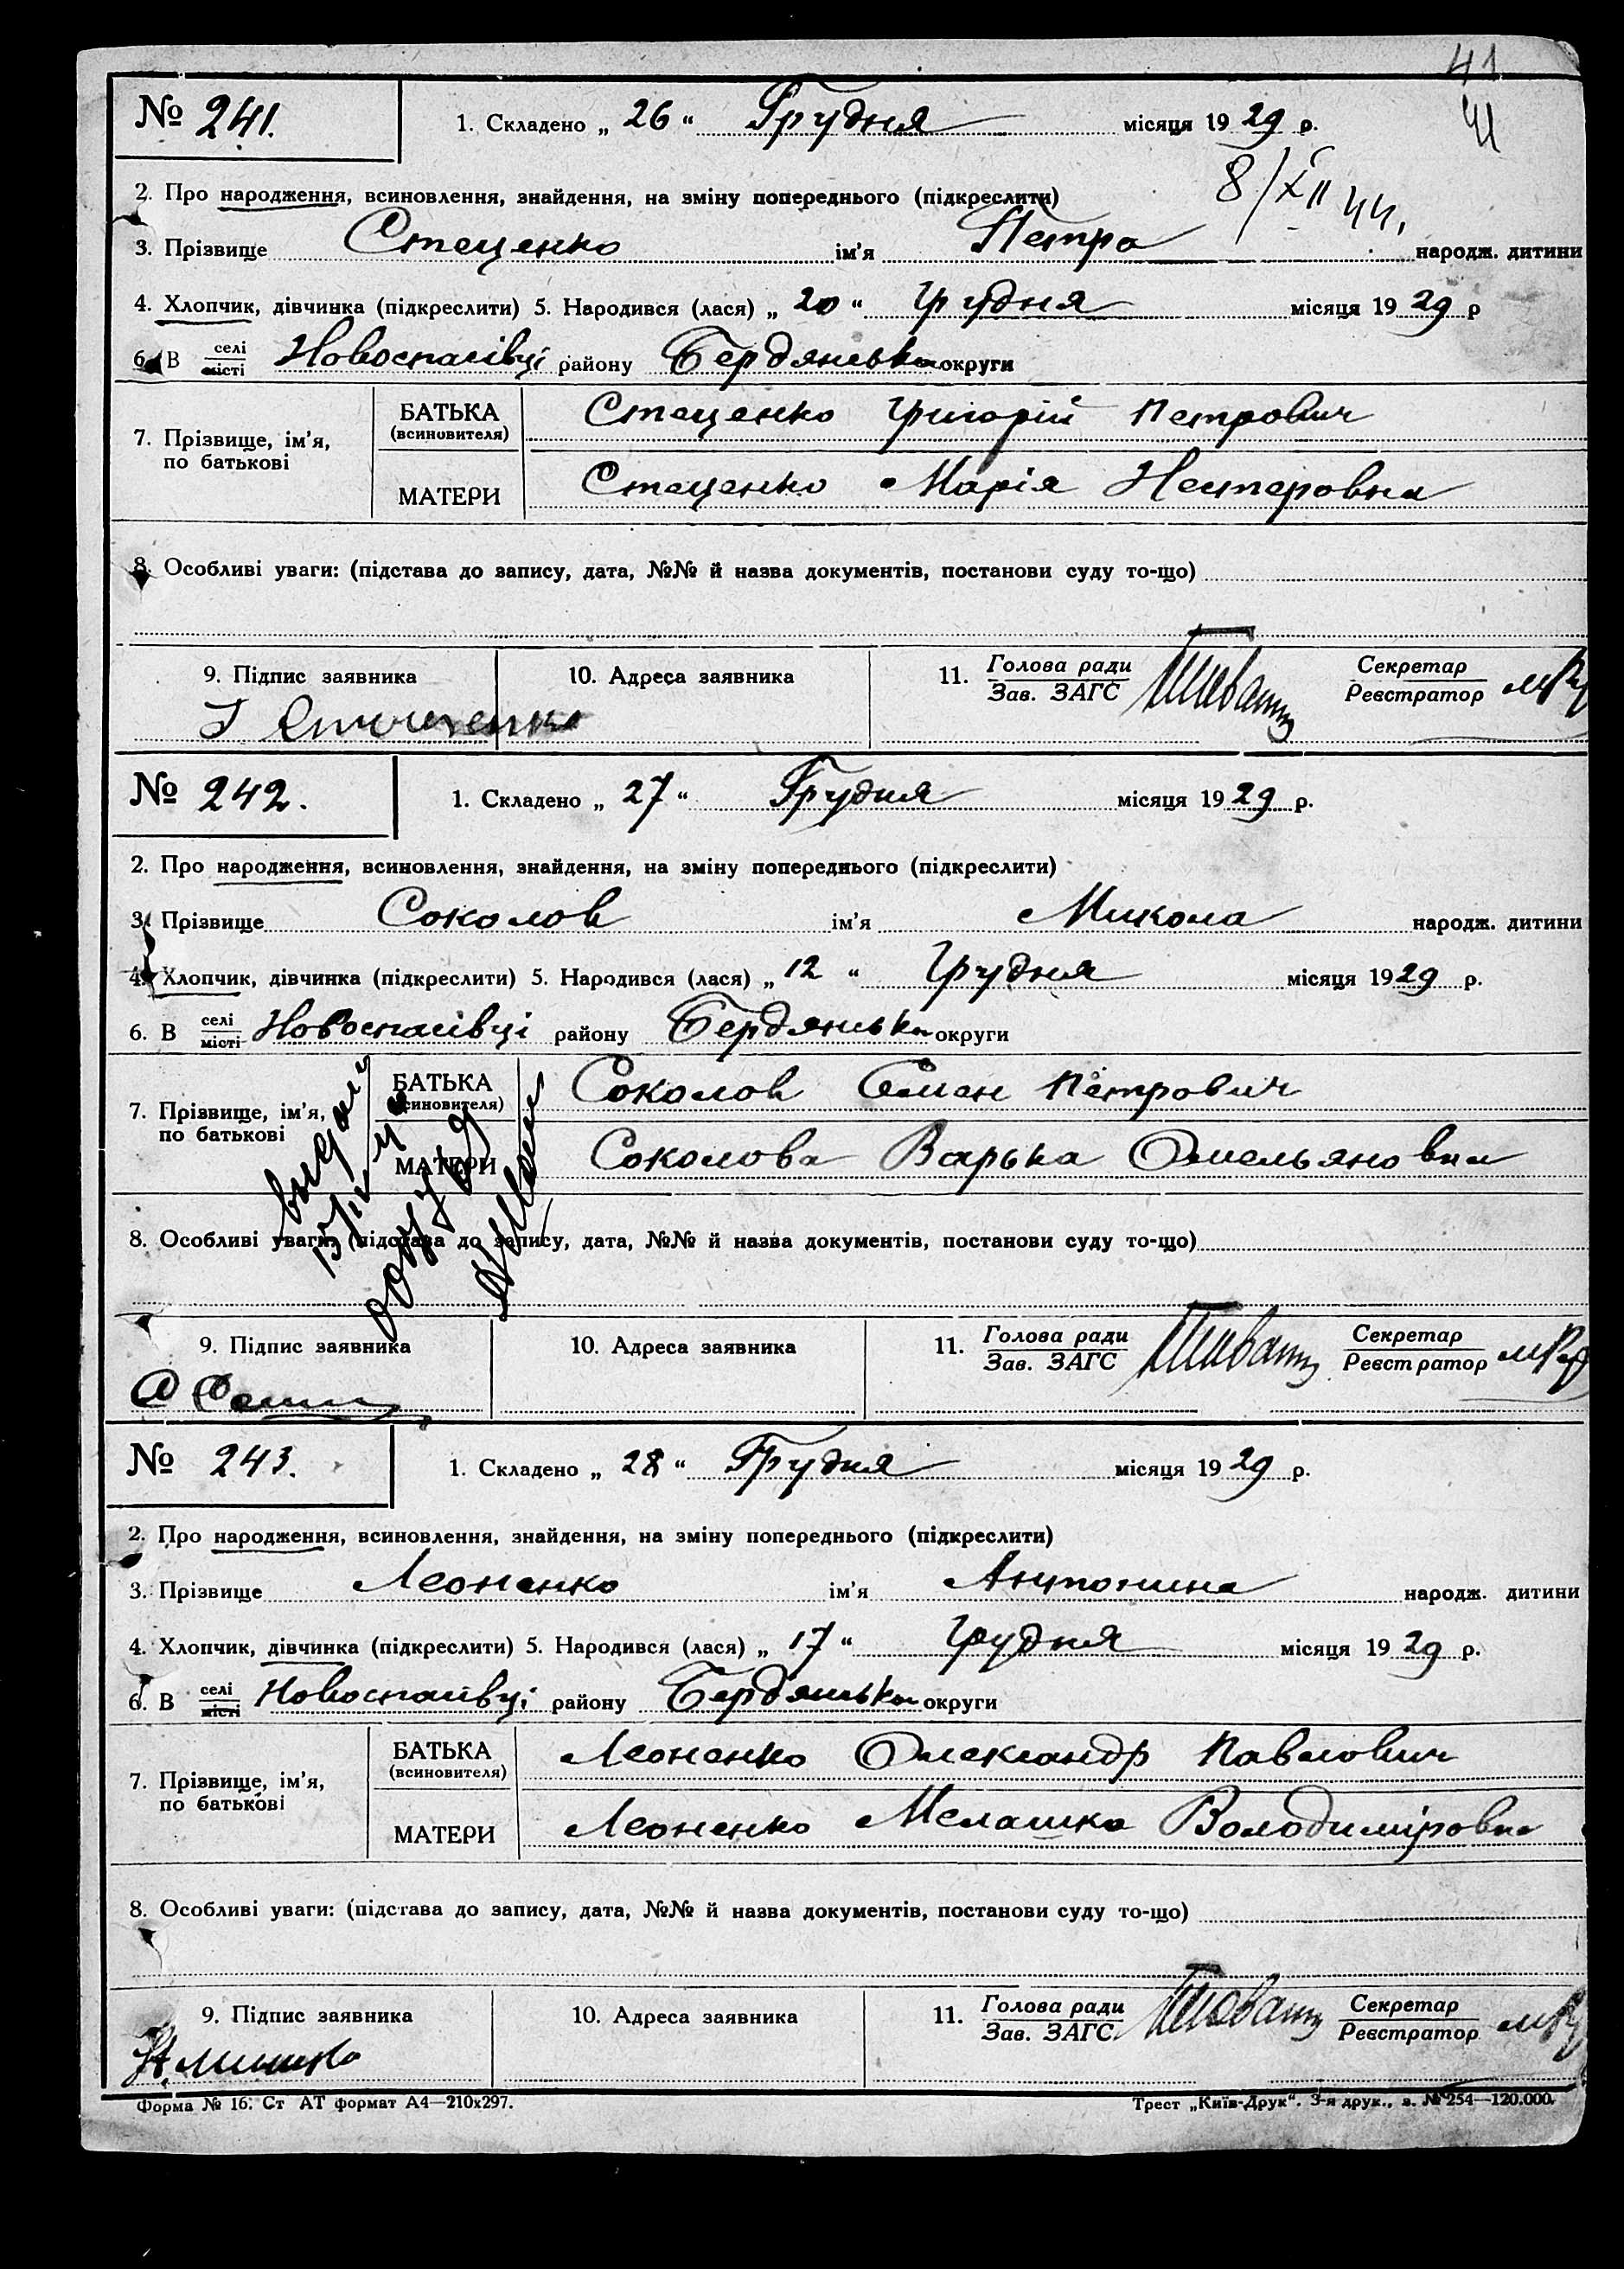 41
41
№ 241. 1. Складено „ 26 “ Грудня місяця 19 29 р.
8/XII 44.
2. Про народження, всиновлення, знайдення, на зміну попереднього (підкреслити)
3. Прізвище Стеценко ім’я Петро народж. дитини
4. Хлопчик, дівчинка (підкреслити) 5. Народився (лася) „ 20 “ Грудня місяця 19 29 р
6. В селі місті Новоспасівці району Бердянська округи
7. Прізвище, ім’я, по батькові
БАТЬКА (всиновителя) Стеценко Григорій Петрович
МАТЕРИ Стеценко Марія Нестеровна
8. Особливі уваги: (підстава до запису, дата, №№ й назва документів, постанови суду то-що)
9. Підпис заявника 10. Адреса заявника 11. Голова ради Зав. ЗАГС Секретар Реєстратор
№ 242. 1. Складено „ 27 “ Грудня місяця 19 29 р.
2. Про народження, всиновлення, знайдення, на зміну попереднього (підкреслити)
3. Прізвище Соколов ім’я Микола народж. дитини
4. Хлопчик, дівчинка (підкреслити) 5. Народився (лася) „ 12 “ Грудня місяця 19 29 р.
6. В селі місті Новоспасівці району Бердянська округи
7. Прізвище, ім’я, по батькові
БАТЬКА (всиновителя) Соколов Семен Петрович
МАТЕРИ Соколова Варька Омельяновна
8. Особливі уваги: (підстава до запису, дата, №№ й назва документів, постанови суду то-що)
9. Підпис заявника 10. Адреса заявника 11. Голова ради Зав. ЗАГС Секретар Реєстратор
№ 243. 1. Складено „ 28 “ Грудня місяця 19 29 р.
2. Про народження, всиновлення, знайдення, на зміну попереднього (підкреслити)
3. Прізвище Леоненко ім’я Антонина народж. дитини
4. Хлопчик, дівчинка (підкреслити) 5. Народився (лася) „ 17 “ Грудня місяця 19 29 р.
6. В селі місті Новоспасівці району Бердянська округи
7. Прізвище, ім’я, по батькові
БАТЬКА (всиновителя) Леоненко Олександр Павлович
МАТЕРИ Леоненко Мелашка Володиміровна
8. Особливі уваги: (підстава до запису, дата, №№ й назва документів, постанови суду то-що)
9. Підпис заявника 10. Адреса заявника 11. Голова ради Зав. ЗАГС Секретар Реєстратор
Форма № 16. Ст АТ формат А4—210х297. Трест „Київ-Друк“. 3-я друк., з. № 254—120.000.